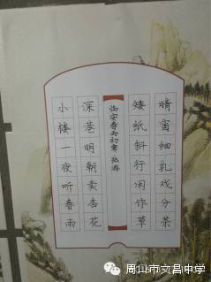 小楼一夜听春雨
深巷明朝卖杏花
临安春雨初霁 陆游
矮纸斜行闲作草
晴窗细乳戏分茶
周山市文昌中学